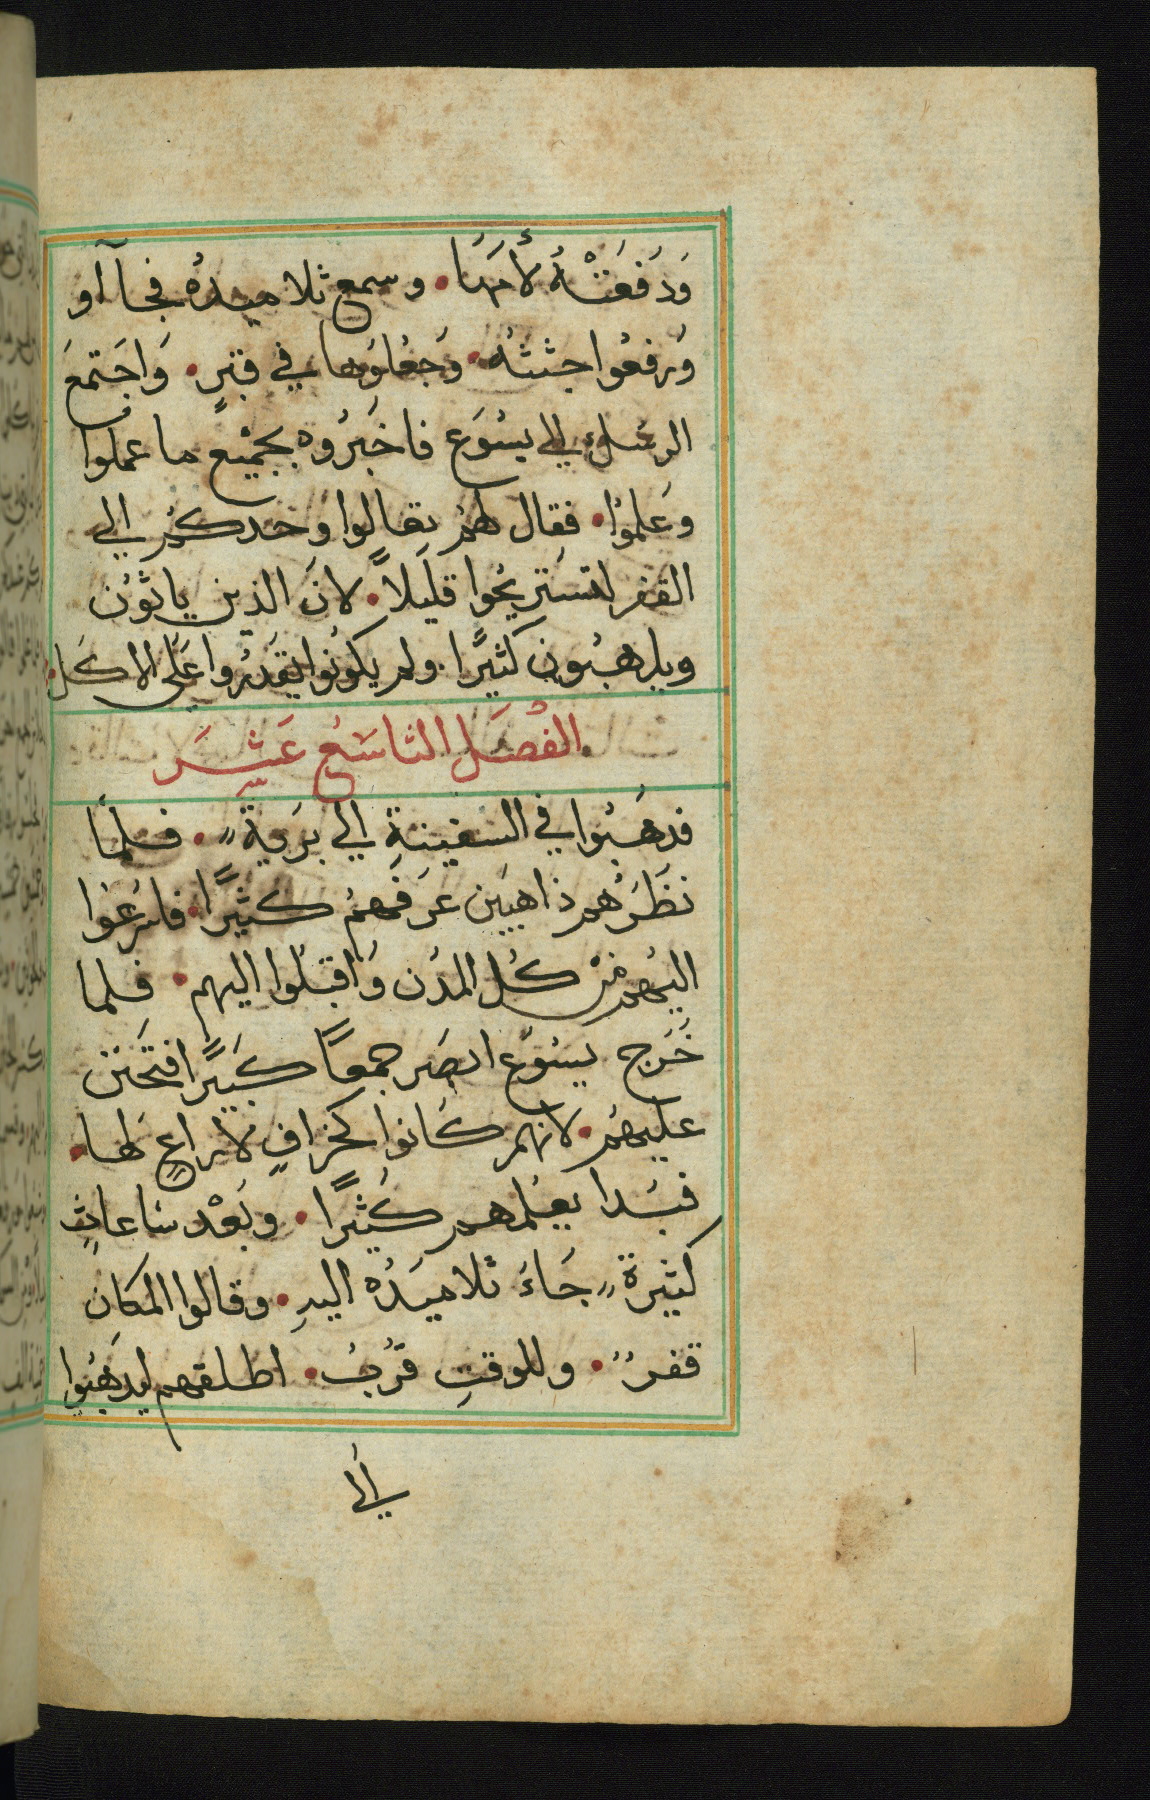 وَدَفَعَتْهُ لأُمَهَا • وسمع تلاميدُه فجاآاو
وَرفعُوا جثثهُ • وَجَعَلوَها في قبرٍ • وَاجَتمعَ
الرسُل الي يسُوَع فاخبَرُوه بجميْع ما عملوا
وَعَلموُا • فقال لهمُ تعالوا وحدكمُ الي
القفر لتستَريحُوا قليَلاً • لانَ الذين ياتوُن
ويدهبُون كثيرًا . ولم يكونُوا يقدَرُوا عَلي الاكَل •
الفْصَل التاسَعُ عَشِرَ
فدهَبُوا في السفينةِ الي بَرية • فلما
نظَرَهُم ذاهبيَن عرَفهمُ كثيرًا • فاسَرعُوا
اليهُم منْ كُل المدُن وَاقبَلُوا اليهم • فلما
خَرج يسُوَع ابصَر جمعاً كبيَرًا فتحَنن
عليهمُ • لانهم كَانوا كخرافٍ لا راعٍ لها •
فبَدا يعُلمهم كُثيرًا • وبَعْد ساعاتٍ
كثيرة جَاءَ تلاميَدُه اليهِ • وقالوا المكان
قفرٌ • وللوقتِ قرُبُ • اطلقهم ليدهَبُوا
الي